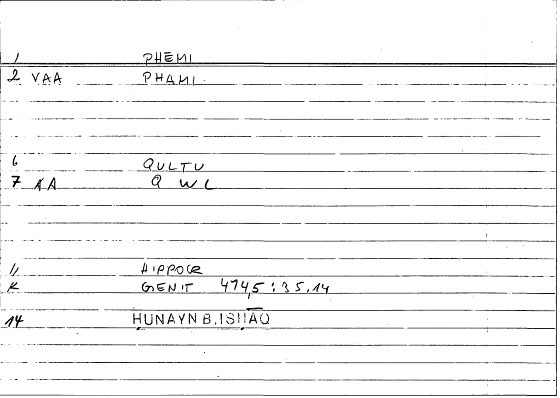 1 PHEMI
2 VAA PHAMI.
6 QULTU
7 AA Q W L
11 HIPPOCR
K GENIT 474,5 : 35,14
14 ḤUNAYN B. ISḤĀQ